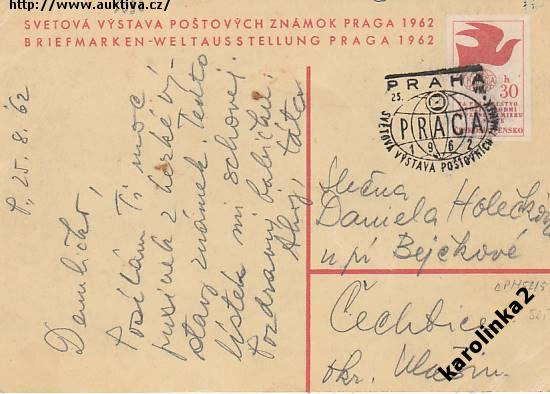 www.auktiva.cz
SVETOVÁ VÝSTAVA POŠTOVÝCH ZNÁMOK PRAGA 1962
BRIEFMARKEN-WELTAUSSTELLUNG PRAGA 1962
h
30
PRAHA
25.
PRAGA
1962
SVĚTOVÁ VÝSTAVA POŠTOVNÍCH
P., 25. 8. 62
Posílám Ti moc
pusinek z hezké vý-
stavy známek. Tento
lístek mi schovej.
Pozdravuj babičku.
Ahoj, táta
Slečna
Daniela Holečková
u pí Bejčkové
Čechtice
okr. Vlašim
karolinka2